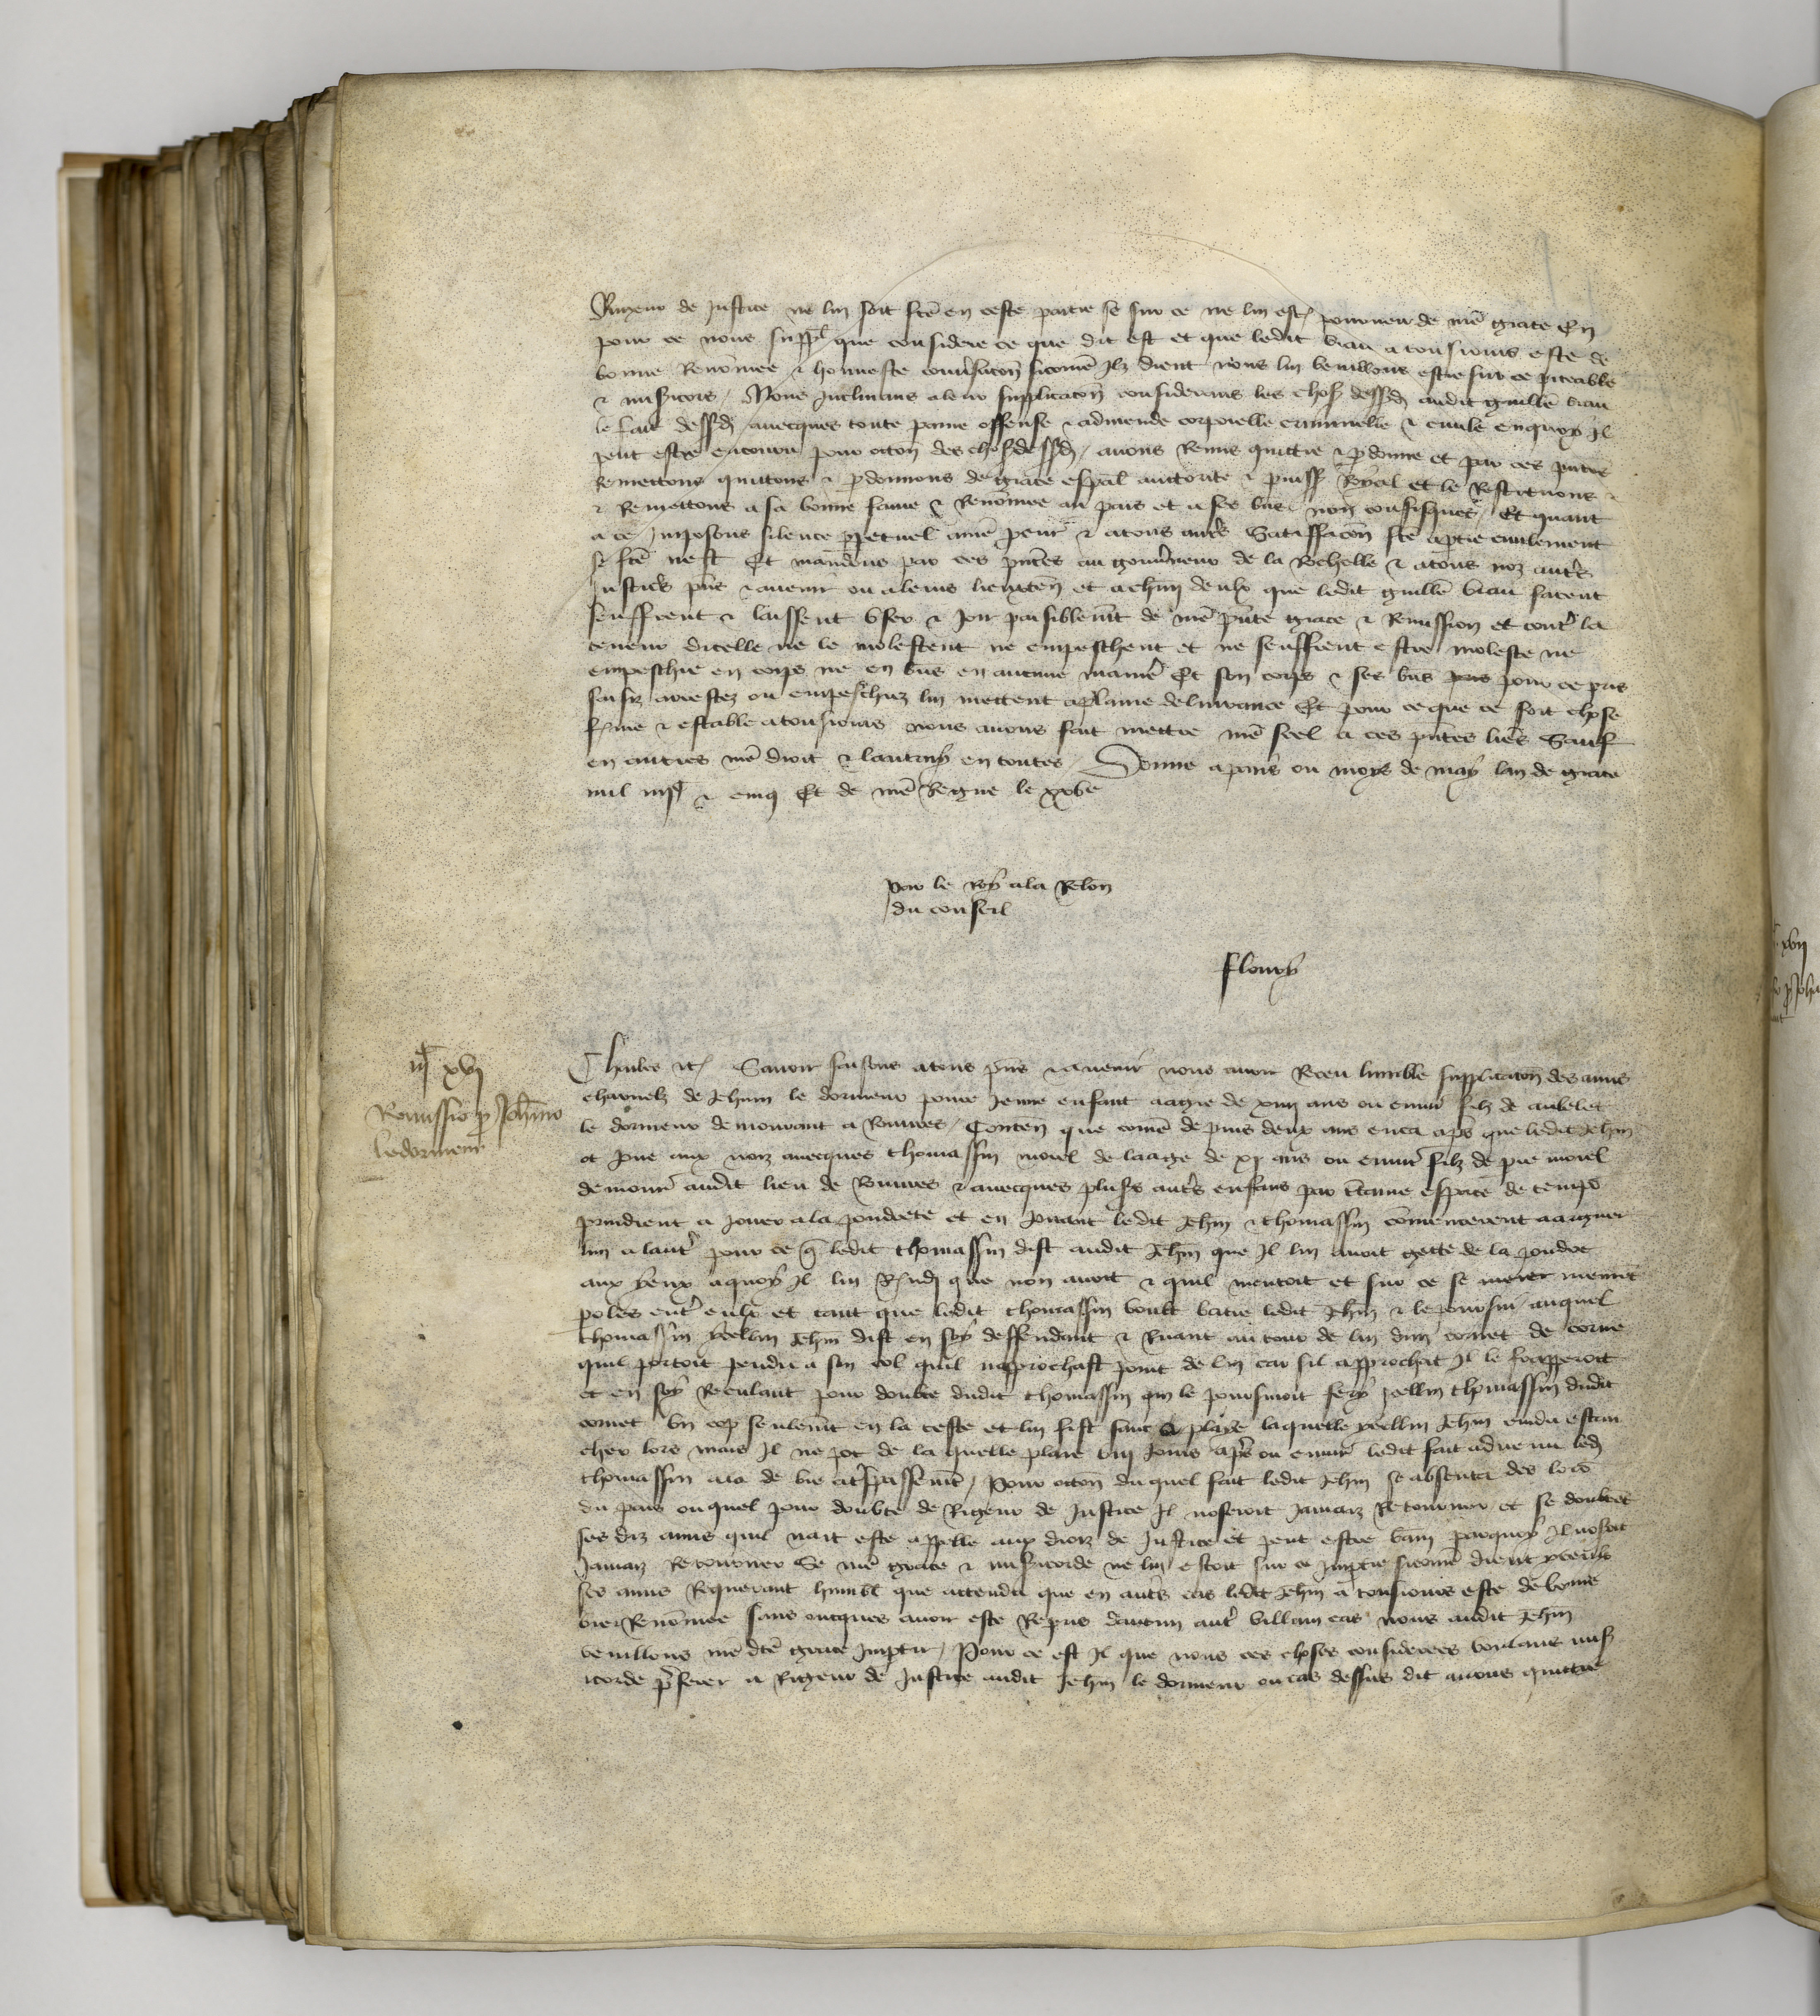 Rigueur de justice ne lui soit fcē en ceste partie se sur ce ne lui est pourveu de nrē grace En
pour ce nous suppl que considere ce que dit est et que ledit viau a tousiours este de
bonne Renommee & honneste conversacōn sicomē Ilz dient nous lui veuillons estre sur ce piteable
& misicors / Nous Inclinans a leur supplicacōn considerans les choses dessd audit guillē viau
le fait dessd avecques toute paine offense & admende corporelle criminelle & civile en quoy Il
peut estre encouru pour occōn des choses dessd / avons Remis quittie & pdonne et par ces pntes
Remettons quittons & pdonnons de grace espāl auctorite & puiss Royal et le Restituons &
& Remettons a sa bonne fame & Renomee au pais et a ses biēs non confisquez / Et quant
a ce Imposons silence ppetuel a nrē pcur & a tous autrs Satisfacōn fcē a ptie civilement
se fcē nest Et mandons par ces pntes au gouvneur de la Rochelle & a tous noz autrs
Justicrs pns & avenir ou a leurs lieuxten et a chun deulx que ledit guillē viau facent
seuffrent & laissent user & joir paisiblemt de nrē pnte grace & Remission et contr la
teneur dicelle ne le molestent ne empeschent et ne seuffrent estre moleste ne
empeschie en corps ne en biēs en aucune manier Et son corps & ses biēs pour ce pris
saisiz arrestez ou empeschiez lui mettent a plaine delivrance Et pour ce que ce soit chose
ferme & estable a tousiours nous avons fait mettre nrē seel a ces pntes lres Sauf
en autres nrē droit & lautruy en toutes / Donne a paris ou moys de may lan de grace
mil iiijc & cinq Et de nrē Regne le xxve
par le Roy a la Relon
du conseil
floury
iijc xvj
Remissio p Johnno
ledormeur
Charles &c Savoir faisons a tous pns & avenir nous avoir Receu lumble supplicacōn des amis
charnelz de Jehan le dormeur povre jeune enfant aagie de xiiij ans ou envir filz de aubelet
le dormeur demourant a Rouvres / Conten que comē depuis deux ans enca aps que ledit Jehan
ot joue aux noiz avecques thomassin morel de laage de xj ans ou envir filz de pre morel
demour audit lieu de Rouvres & avecques plusrs autrs enfans par ctaine espace de temps
prindrent a jouer a la pouldrete et en jouant ledit Jehan & thomassin commencerent a arguer
lun a lautr pour ce q ledit thomassin dist audit Jehan que Il lui avoit gette de la pouldre
aux yeulx a quoy Il lui Respndi que non avoit & quil mentoit et sur ce se
poles entr eulx et tant que ledit thomassin voult batre ledit Jehan & le poursui auquel
thomassin ycellui Jehan dist en soy deffendant & Ruant au tour de lui dun cornet de corne
quil portoit pendu a son col quil naprochast point de lui car sil approchat Il le frapperoit
et en soy Reculant pour doubte dudit thomassin qui le poursuioit fery icellui thomassin dudit
cornet un cop seulemt en la teste et lui fist sanc & playe laquelle ycellui Jehan cuida estan
cher lors mais Il ne pot de laquelle plaie viij jours aps ou envir ledit fait advenu led
thomassin ala de vie a trespassemt / Pour occōn duquel fait ledit Jehan se absenta des lors
du pais ouquel pour doubte de Rigueur de Justice Il noseroit jamaiz Retourner et se doubtet
ses diz amis quil nait este appelle aux droiz de Justice et peut estre bany parquoy Il noseroit
jamaiz Retourner Se nrē grace & misicorde ne lui estoit sur ce impartie sicomē dient yceulx
ses amis Requerant humbl que attendu que en autrs cas ledit Jehan a tousiours este de bonne
vie & Renommee sans oncques avoir este Repris daucun autr villain cas nous audit Jehan
veuillons nrē dcē grace impartir / Pour ce est Il que nous ces choses considerees voulans mis
icorde pferer a Rigueur de Justice audit Jehan le dormeur ou cas dessus dit avons quittie